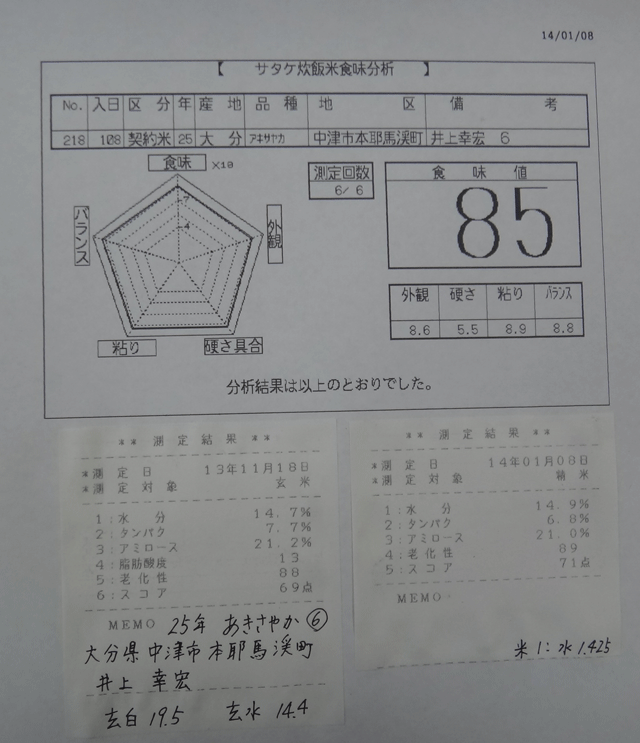 14/01/08
【 サタケ炊飯米食味分析 】
No. 入日 区分 年 産地 品種 地区 備考
218 108 契約米 25 大分 アキサヤカ 中津市本耶馬渓町 井上幸宏 6
食味 ×10
7
4
バランス
外観
粘り
硬さ具合
測定回数
6/ 6
食味値
85
外観 硬さ 粘り バランス
8.6 5.5 8.9 8.8
分析結果は以上のとおりでした。
** 測定結果 **
*測定日 13年11月18日
*測定対象 玄米
1:水分 14.7%
2:タンパク 7.7%
3:アミロース 21.2%
4:脂肪酸度 13
5:老化性 88
6:スコア 69点
MEMO 25年 あきさやか ⑥
大分県中津市本耶馬渓町
井上 幸宏
玄白 19.5 玄水 14.4
** 測定結果 **
*測定日 14年01月08日
*測定対象 精米
1:水分 14.9%
2:タンパク 6.8%
3:アミロース 21.0%
4:老化性 89
5:スコア 71点
MEMO
米1:水1.425